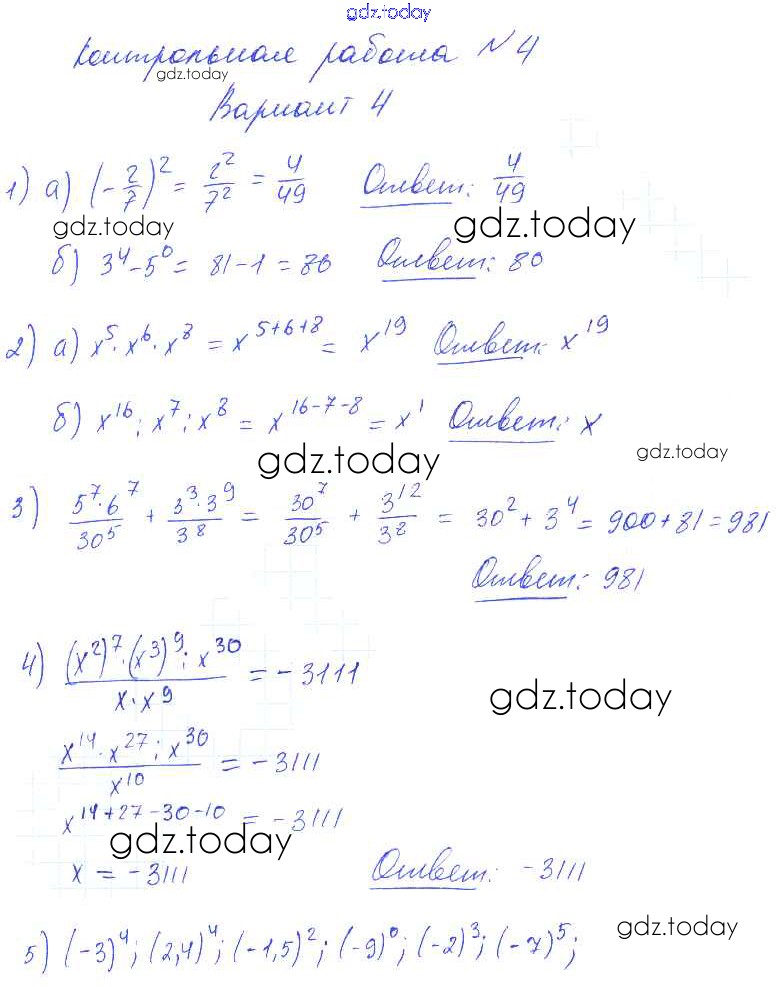 gdz.today
Контрольная работа №4
gdz.today
Вариант 4
1) а) (-2/7)^2 = 2^2/7^2 = 4/49 Ответ: 4/49
gdz.today gdz.today
б) 3^4 - 5^0 = 81 - 1 = 80 Ответ: 80
2) а) x^5 · x^6 · x^8 = x^(5+6+8) = x^19 Ответ: x^19
б) x^16 : x^7 : x^8 = x^(16-7-8) = x^1 Ответ: x
gdz.today gdz.today
3) (5^7 · 6^7)/30^5 + (3^3 · 3^9)/3^8 = 30^7/30^5 + 3^12/3^8 = 30^2 + 3^4 = 900 + 81 = 981
Ответ: 981
4) ((x^2)^7 · (x^3)^9 : x^30)/(x · x^9) = -3111
gdz.today
(x^14 · x^27 : x^30)/x^10 = -3111
x^(14+27-30-10) = -3111
gdz.today
x = -3111 Ответ: -3111
gdz.today
5) (-3)^4; (2,4)^4; (-1,5)^2; (-9)^0; (-2)^3; (-7)^5;